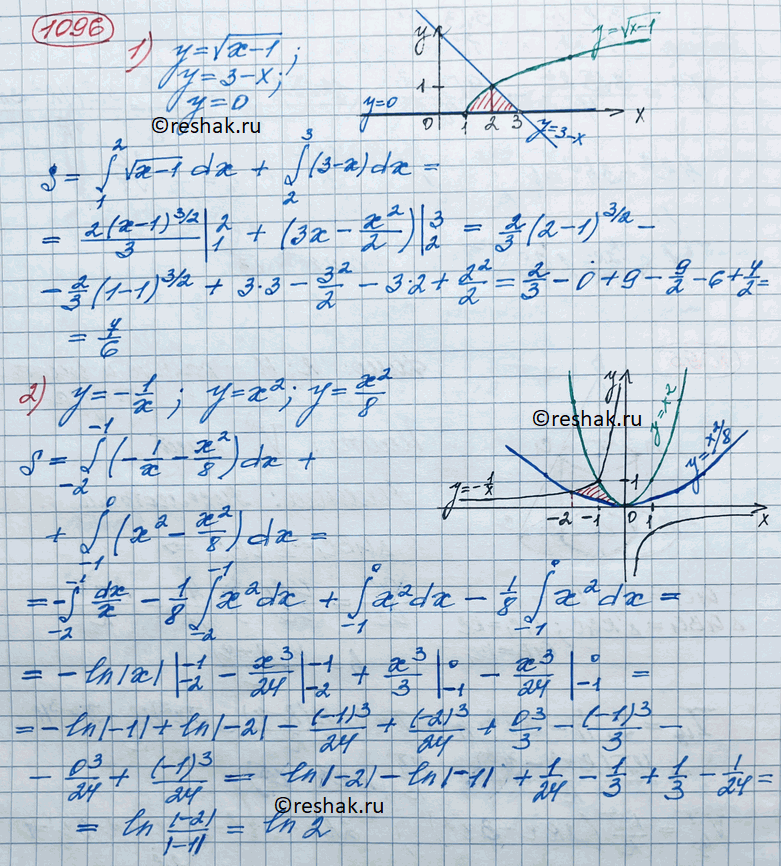 1096
1) y = √(x-1);
y = 3 - x;
y = 0
©reshak.ru
y
y = √(x-1)
1
y=0
0 1 2 3 x
y=3-x
S = ∫₁² √(x-1) dx + ∫₂³ (3-x) dx =
= 2(x-1)^(3/2)/3 |₁² + (3x - x²/2)|₂³ = 2/3 (2-1)^(3/2) -
- 2/3 (1-1)^(3/2) + 3·3 - 3²/2 - 3·2 + 2²/2 = 2/3 - 0 + 9 - 9/2 - 6 + 4/2 =
= 7/6
2) y = -1/x ; y = x²; y = x²/8
y
©reshak.ru
y=x²
y=x²/8
y=-1/x
1
-2 -1 0 1 x
S = ∫₋₂⁻¹ (-1/x - x²/8) dx +
+ ∫₋₁⁰ (x² - x²/8) dx =
= -∫₋₂⁻¹ dx/x - 1/8 ∫₋₂⁻¹ x² dx + ∫₋₁⁰ x² dx - 1/8 ∫₋₁⁰ x² dx =
= -ln|x| |₋₂⁻¹ - x³/24 |₋₂⁻¹ + x³/3 |₋₁⁰ - x³/24 |₋₁⁰ =
= -ln|-1| + ln|-2| - (-1)³/24 + (-2)³/24 + 0³/3 - (-1)³/3 -
- 0³/24 + (-1)³/24 = ln|-2| - ln|-1| + 1/24 - 1/3 + 1/3 - 1/24 =
©reshak.ru
= ln |-2|/|-1| = ln 2